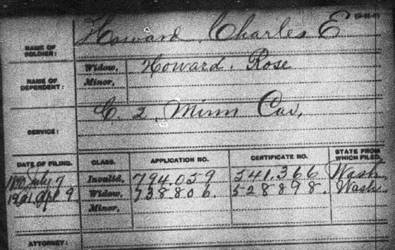 NAME OF SOLDIER: Howard, Charles E
NAME OF DEPENDENT: Widow, Howard, Rose
Minor,
SERVICE: C. 2, Minn Cav,
DATE OF FILING. CLASS. APPLICATION NO. CERTIFICATE NO. STATE FROM WHICH FILED.
July 7 Invalid, 794.059 541.366 Wash
1921 Apl 9 Widow, 738806. 528898. Wash
Minor,
ATTORNEY: